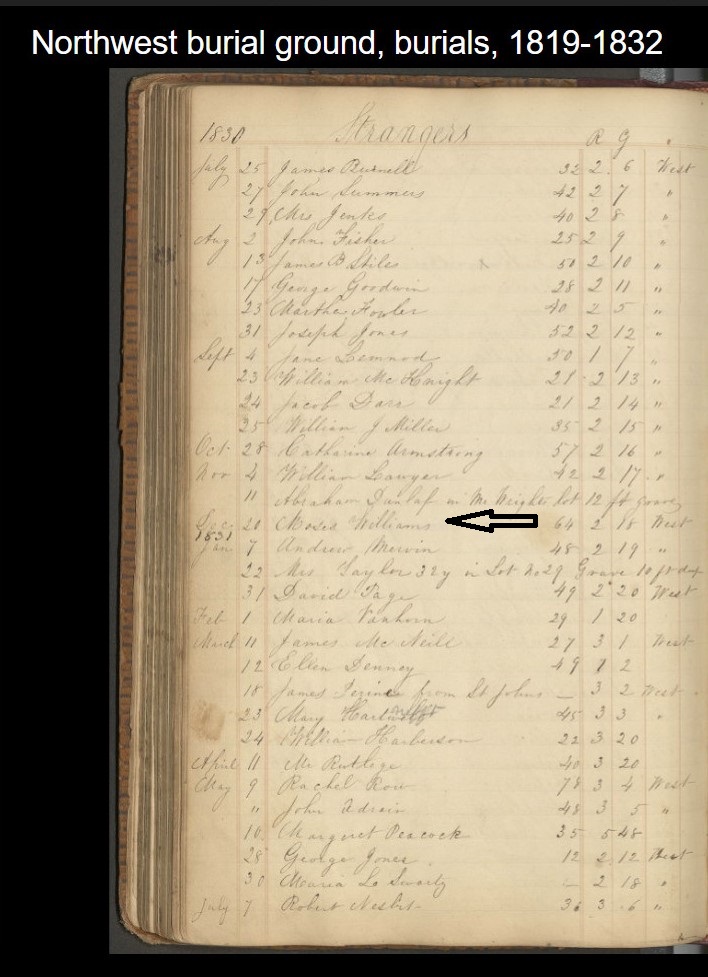 Northwest burial ground, burials, 1819-1832
1830 Strangers R G "
July 25 James Burnell 32 2 6 West
27 John Summers 42 2 7 "
29 Mrs Jenks 40 2 8 "
Aug 2 John Fisher 25 2 9 "
13 James B Stiles 50 2 10 "
17 George Goodwin 28 2 11 "
23 Martha Fowler 40 2 5 "
31 Joseph Jones 52 2 12 "
Sept 4 Jane 50 1 7 "
23 William Mc Knight 21 2 13 "
24 Jacob Darr 21 2 14 "
25 William J Miller 35 2 15 "
Oct 28 Catharine Armstrong 57 2 16 "
Nov 4 William Lawyer 42 2 17 "
11 Abraham Dunlap in Mr Wrights lot 12 ft grave
Dec 20 Moses Williams 64 2 18 West
1831
Jan 7 Andrew Mervin 48 2 19 "
22 Mrs Taylor 32y in Lot No 29 Grave 10 ft
31 David Page 49 2 20 West
Feb 1 Maria Vanhorn 29 1 20
March 11 James Mc Neill 27 3 1 West
12 Ellen Denney 49 1 2
18 James from St Johns — 3 2 West
23 Mary 45 3 3 "
24 William Harberson 22 3 20
April 11 Mr Rutlege 40 3 20
May 9 Rachel Row 78 3 4 West
" John Adrain 48 3 5 "
10 Margaret Peacock 35 5 48
28 George Jones 12 2 12 West
30 Maria L Swartz — 2 18 "
July 7 Robert Nesbit 36 3 6 "